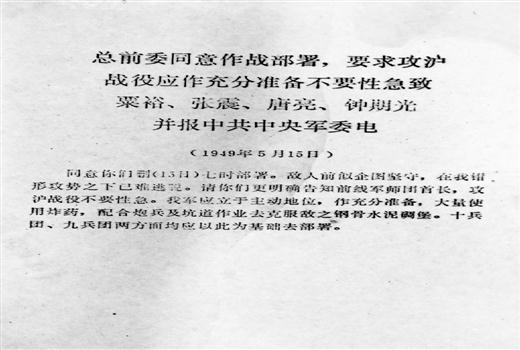 总前委同意作战部署，要求攻沪
战役应作充分准备不要性急致
粟裕、张震、唐亮、钟期光
并报中共中央军委电
（1949年5月15日）
同意你们删(15日)七时部署。敌人前似企图坚守，在我钳
形攻势之下已难逃。请你们更明确告知前线军师团首长，攻
沪战役不要性急。我军应立于主动地位，作充分准备，大量使
用炸药，配合炮兵及坑道作业去克服敌之钢骨水泥碉堡。十兵
团、九兵团两方面均应以此为基础去部署。